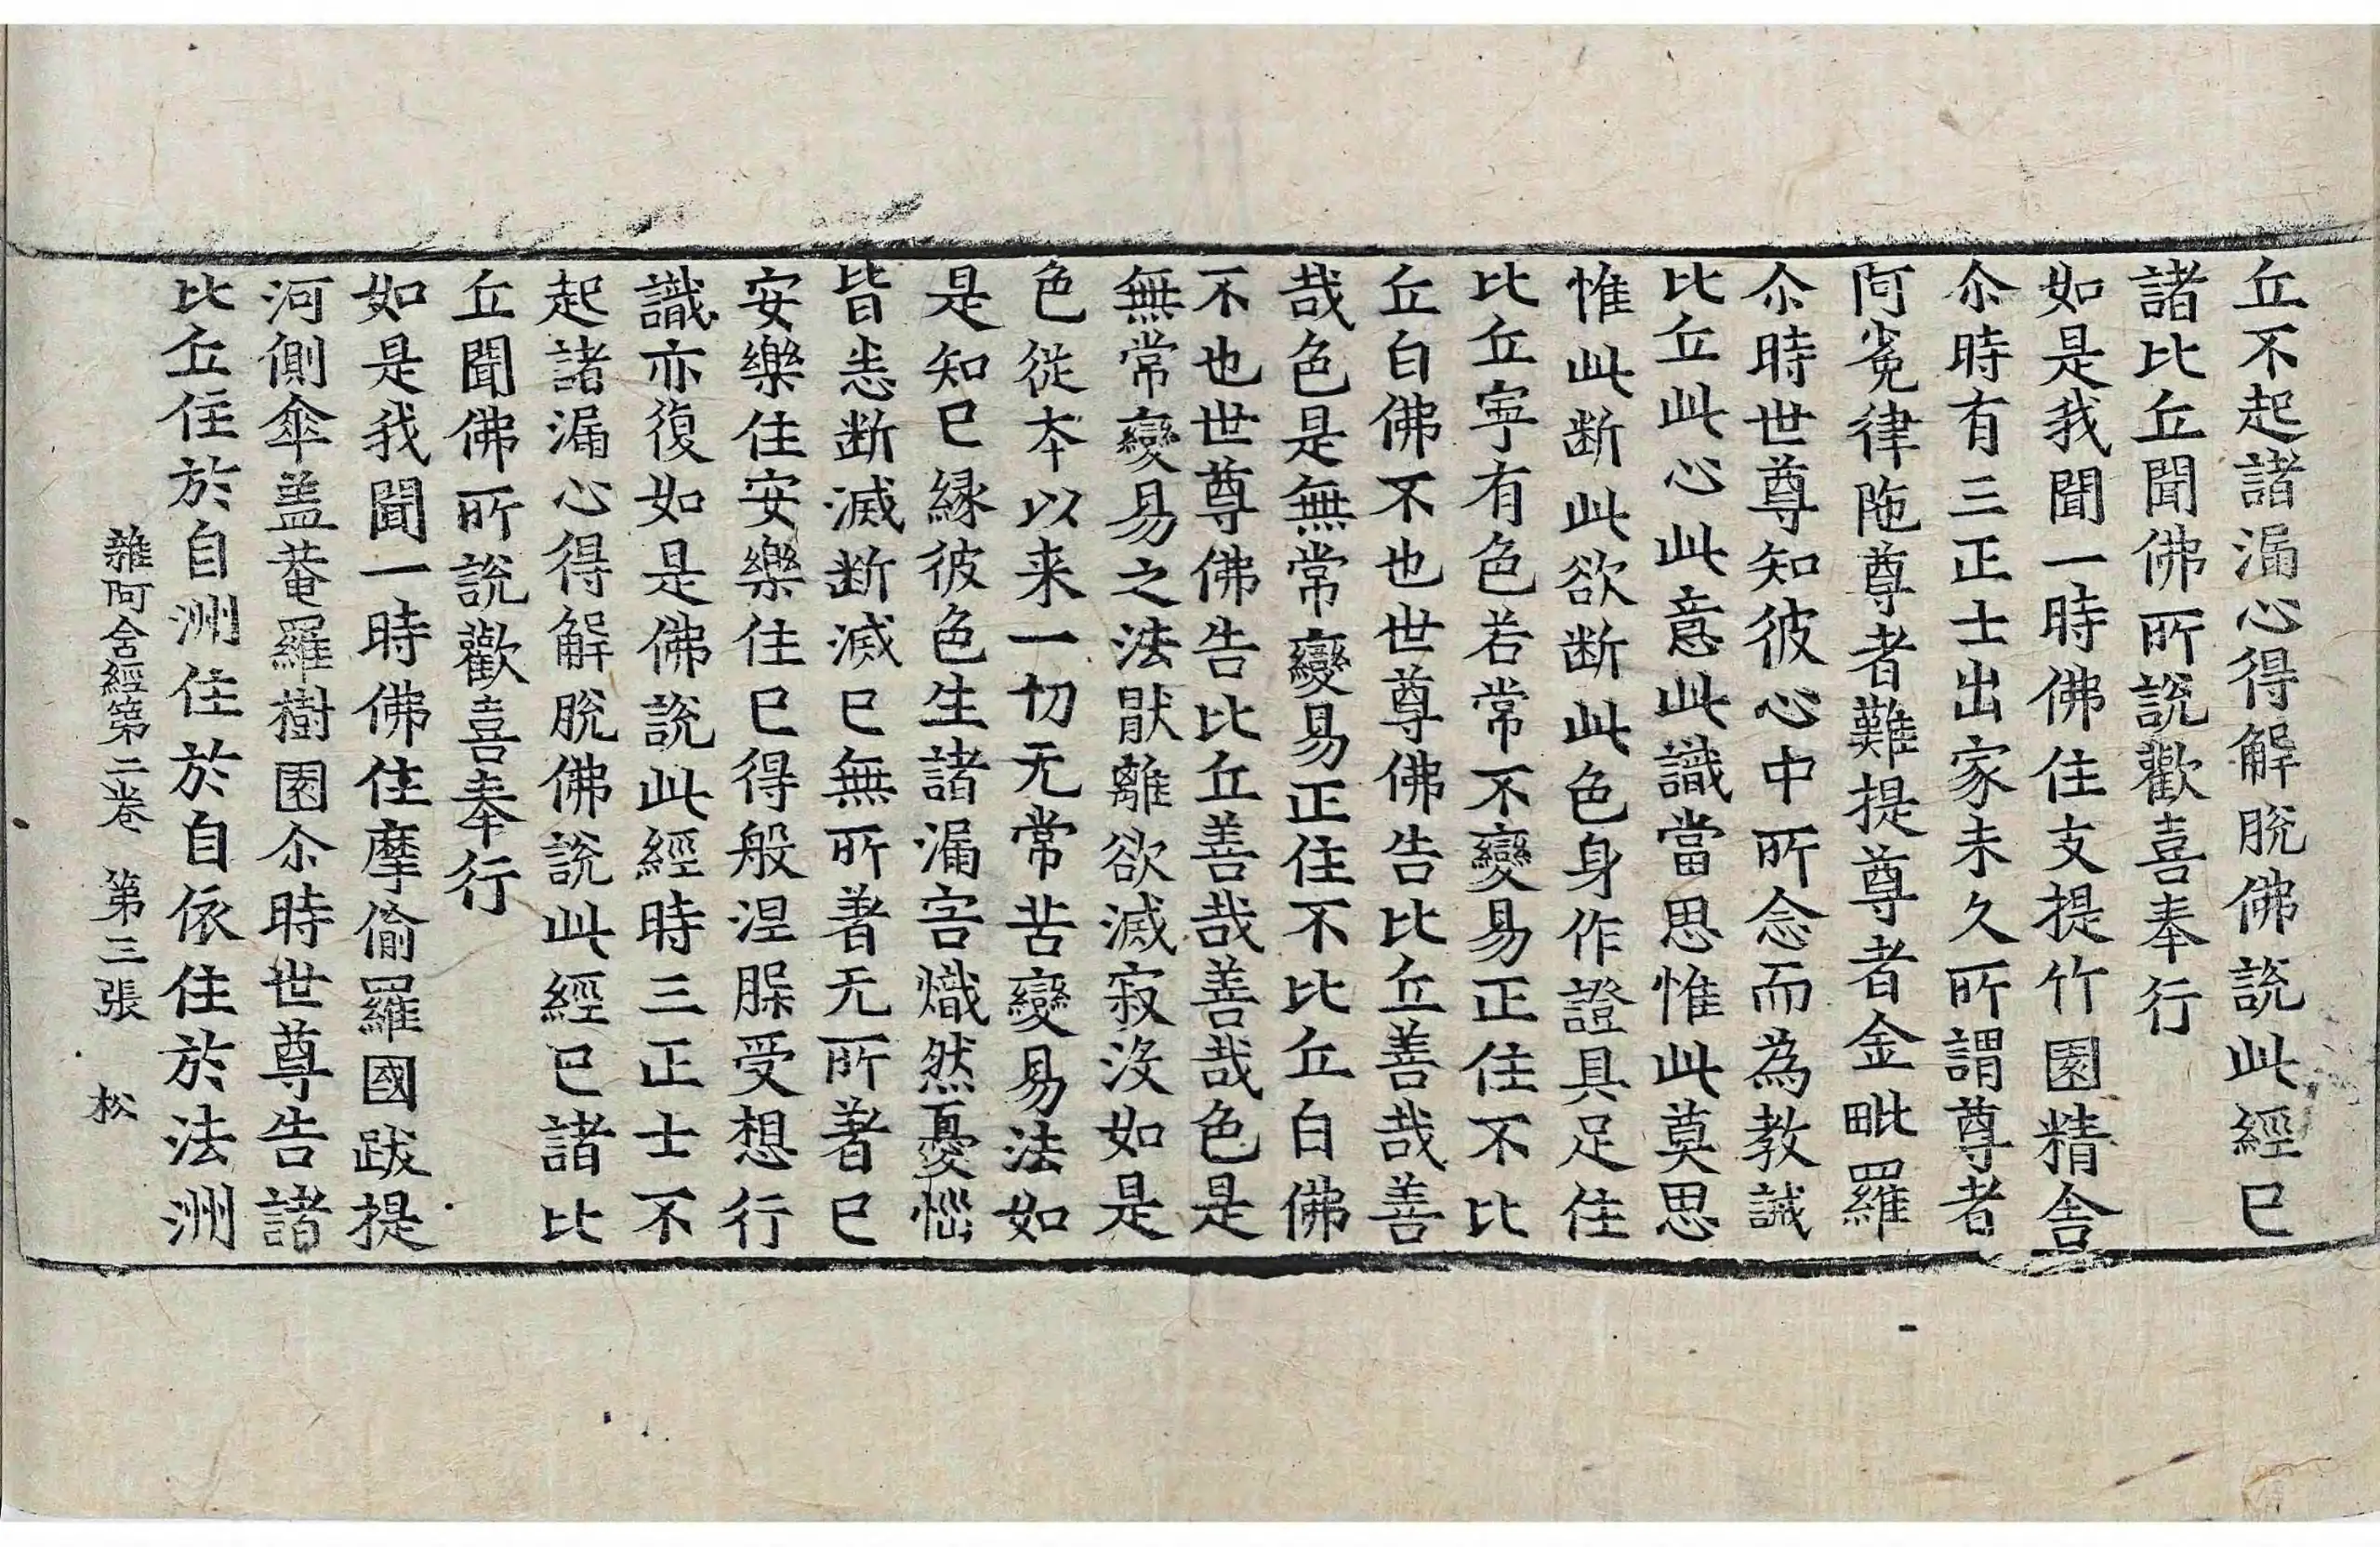 丘不起諸漏心得解脫佛說此經已
諸比丘聞佛所說歡喜奉行
如是我聞一時佛住支提竹園精舍
尒時有三正士出家未久所謂尊者
阿㝹律陁尊者難提尊者金毗羅
尒時世尊知彼心中所念而為教誡
比丘此心此意此識當思惟此莫思
惟此断此欲断此色身作證具足住
比丘寧有色若常不變易正住不比
丘白佛不也世尊佛告比丘善哉善
哉色是無常變易正住不比丘白佛
不也世尊佛告比丘善哉善哉色是
無常變易之法猒離欲滅寂沒如是
色從本以来一切无常苦變易法如
是知已緣彼色生諸漏害熾然憂惱
皆悉断滅断滅已無所著无所著已
安樂住安樂住已得般涅槃受想行
識亦復如是佛說此經時三正士不
起諸漏心得解脫佛說此經已諸比
丘聞佛所說歡喜奉行
如是我聞一時佛住摩偷羅國跋提
河側傘盖菴羅樹園尒時世尊告諸
比丘住於自洲住於自依住於法洲
雜阿含經第二卷 第三張 松